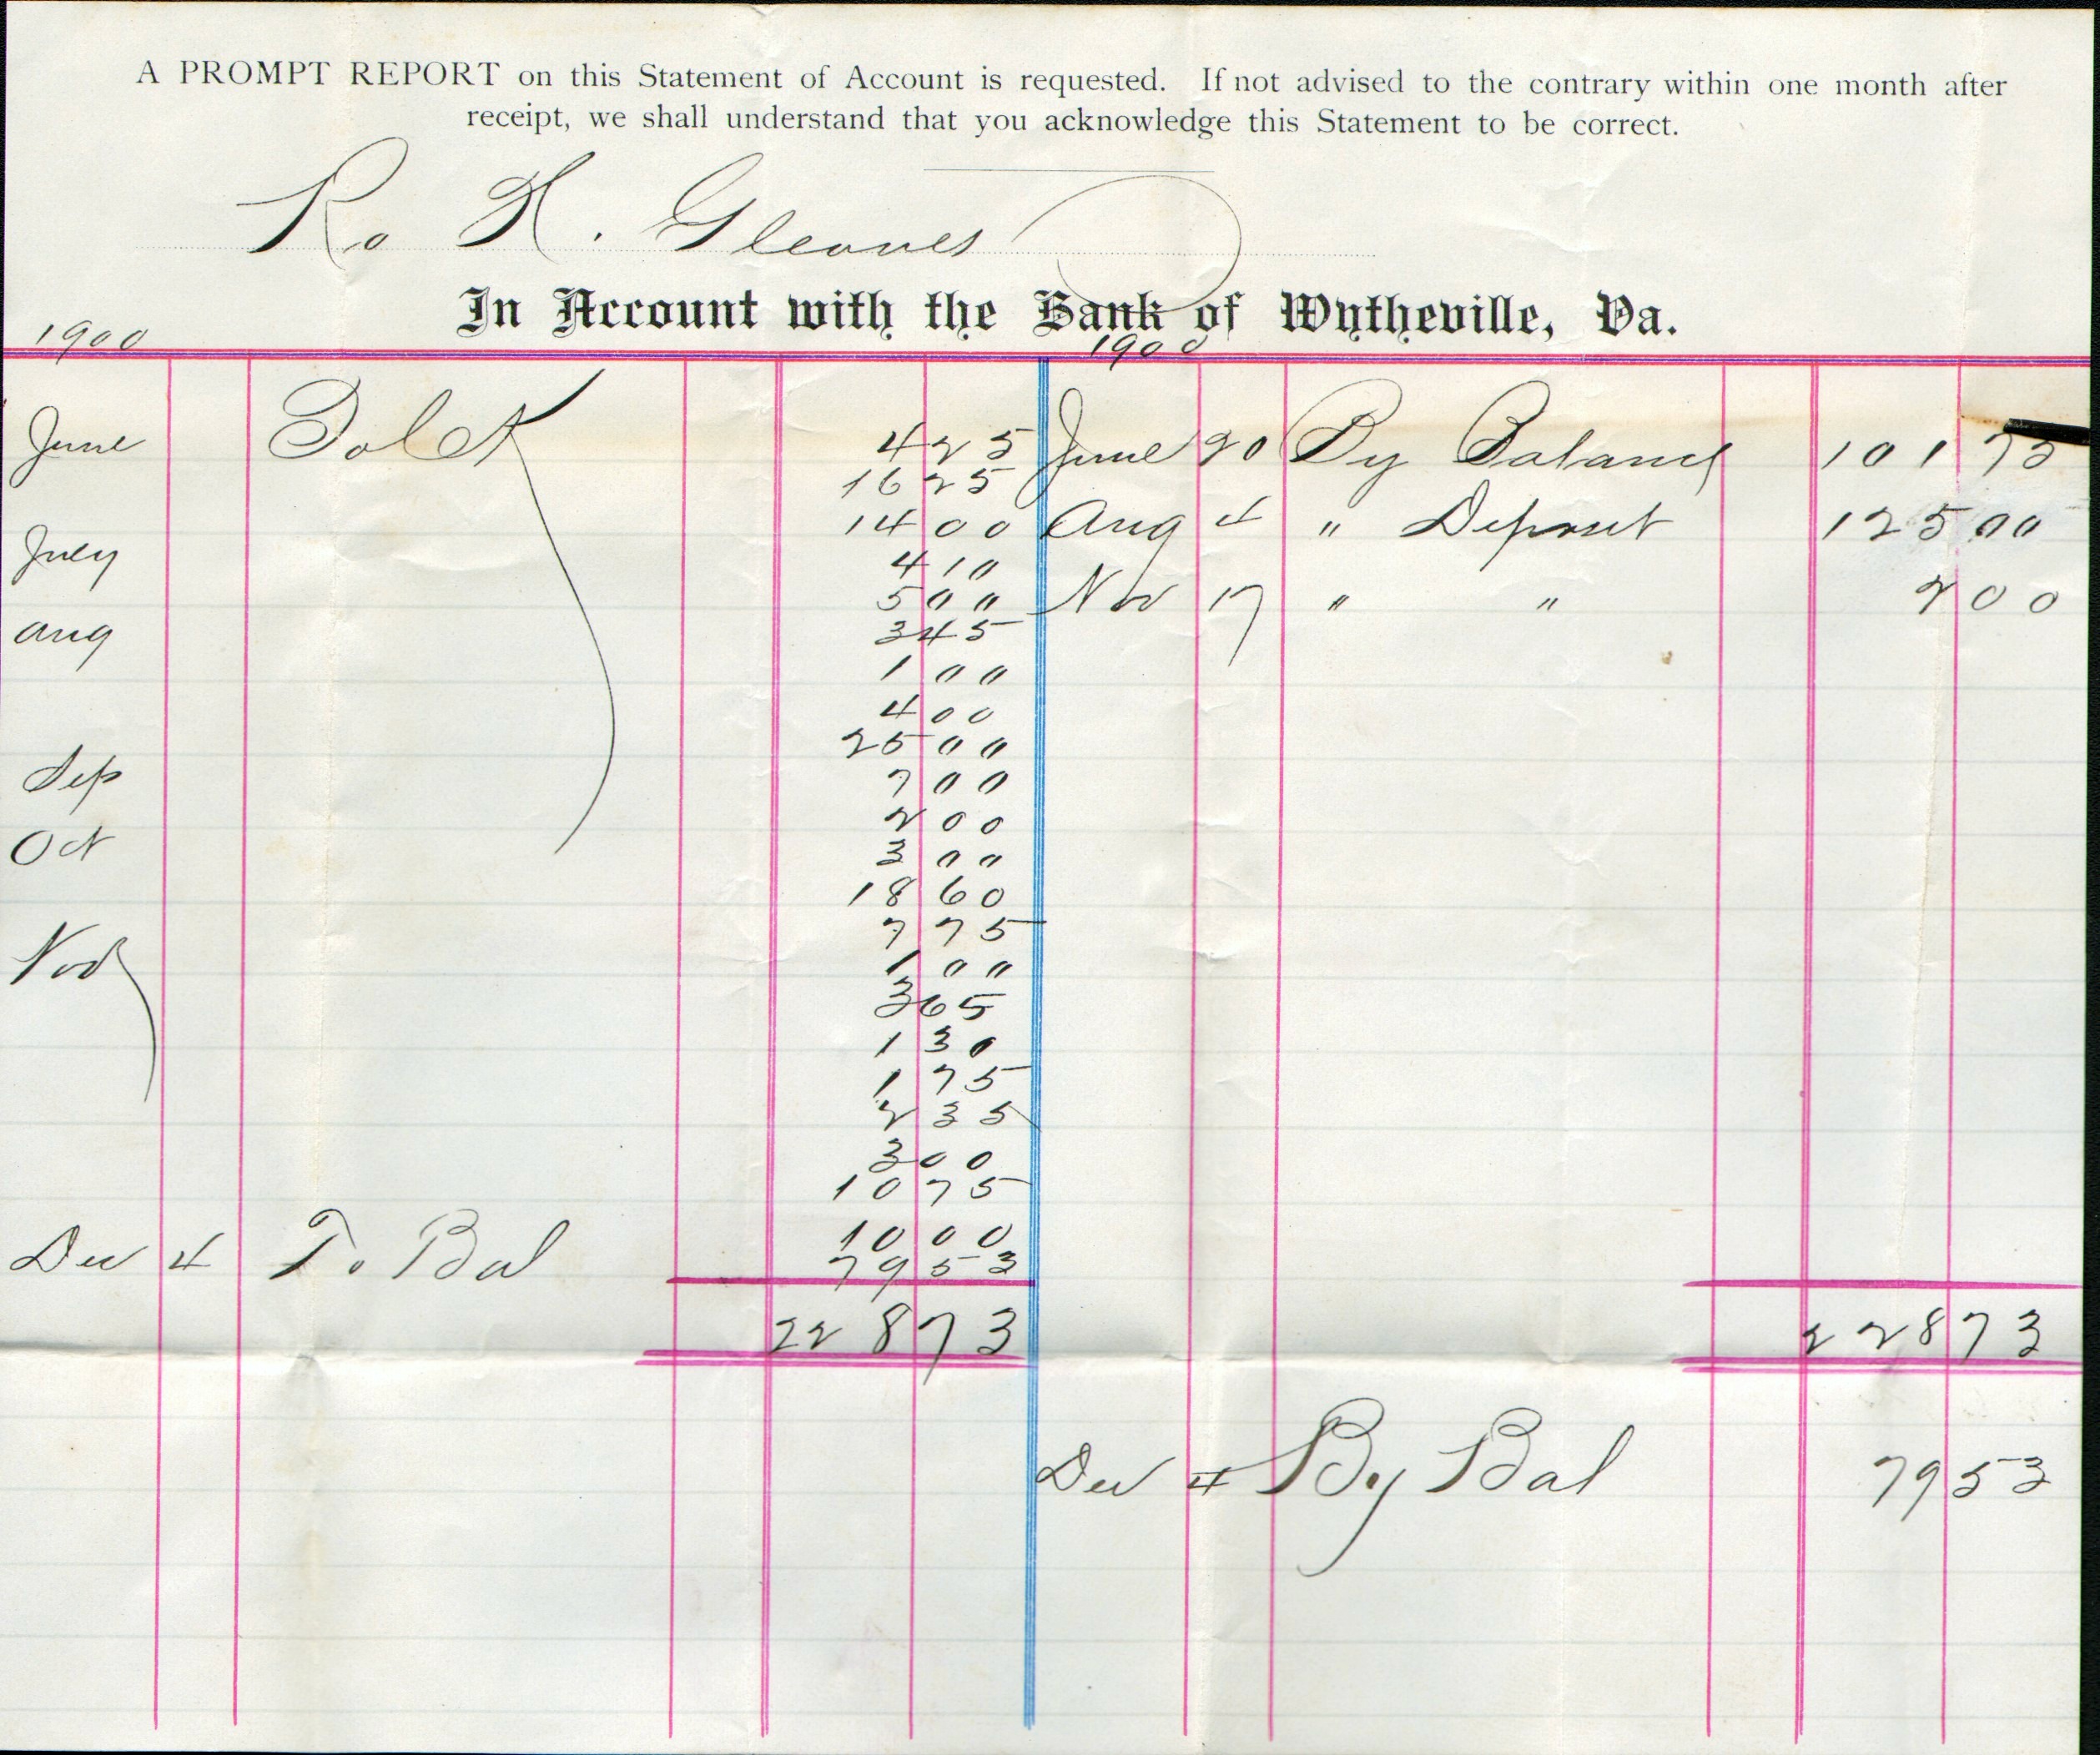 A PROMPT REPORT on this Statement of Account is requested. If not advised to the contrary within one month after
receipt, we shall understand that you acknowledge this Statement to be correct.
Ro H. Gleaves
In Account with the Bank of Wytheville, Va.
1900 1900
June To Ck 4 25 June 20 By Balance 101 73
16 25
14 00 Aug 4 " Deposit 125 00
July 4 10
5 00 Nov 17 " " 2 00
Aug 3 45
1 00
4 00
25 00
Sep 7 00
2 00
Oct 3 00
18 60
7 75
Nov 1 00
3 65
1 30
1 75
2 35
3 00
10 75
10 00
Dec 4 To Bal 79 53
228 73 228 73
Dec 4 By Bal 79 53